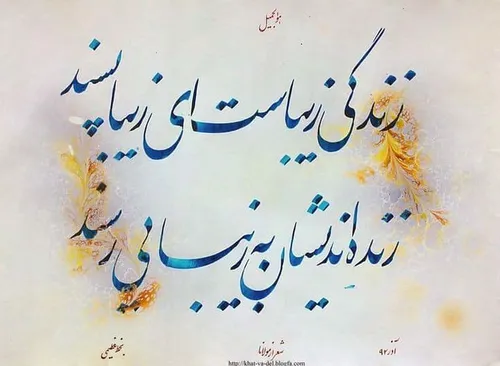 هوالجمیل
زندگی زیباست ای زیبا پسند
زنده اندیشان به زیبایی رسند
آذر ۹۲
شعر از مولانا
بخط عظیمی
http://khat-va-del.blogfa.com